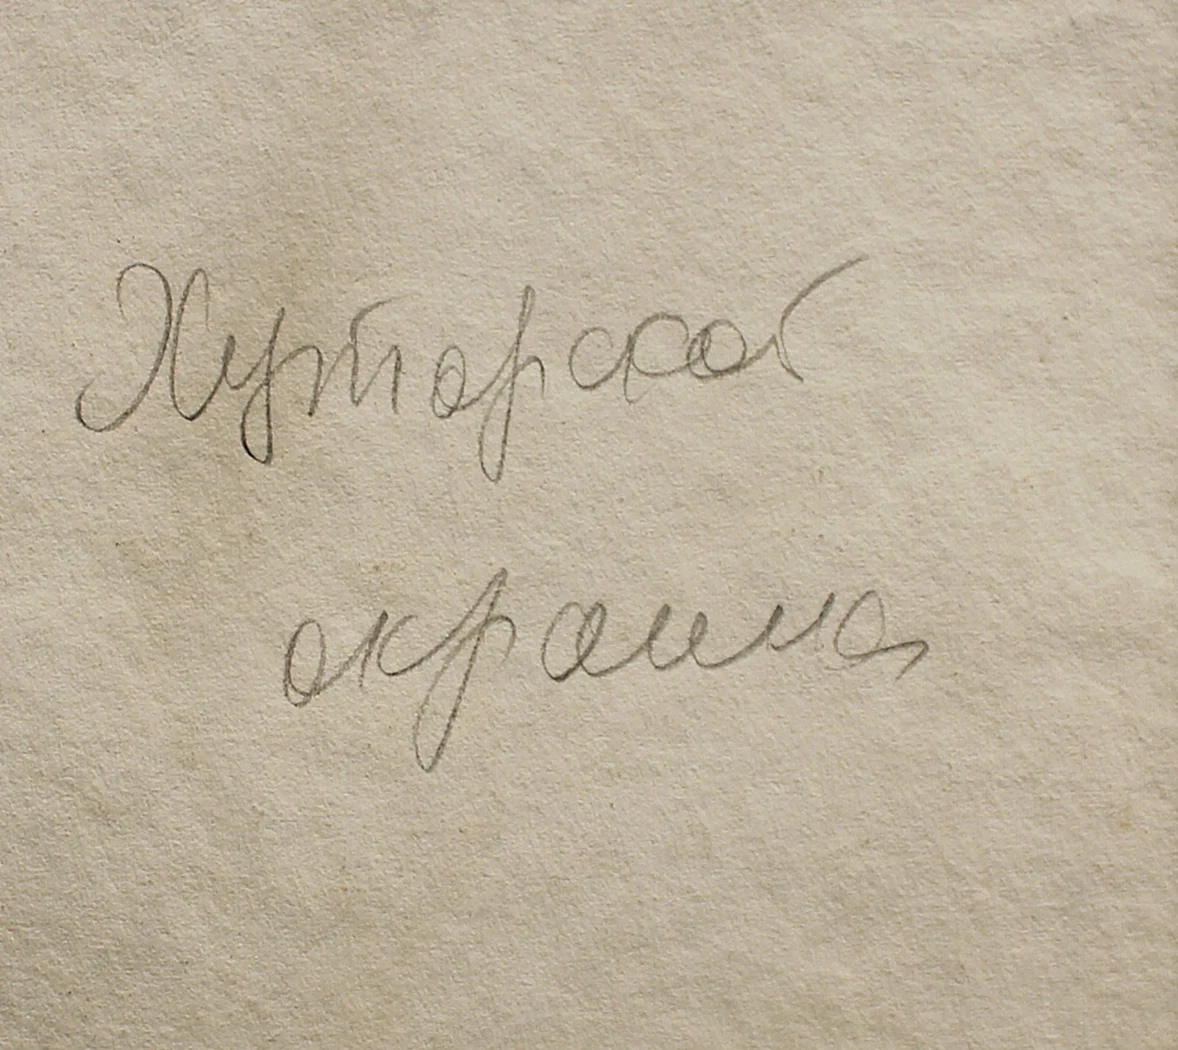 Хуторская
окраина